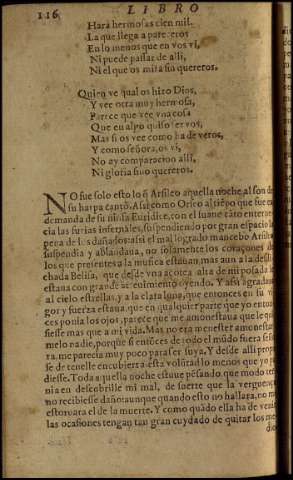 116 LIBRO
Hara hermosas cien mil.
La que llega a pareceros
En lo menos que en vos vi,
Ni puede passar de alli,
Ni el que os mira sin quereros.
Quien ve qual os hizo Dios,
Y vee otra muy hermosa,
Parece que vee vna cosa
Que en algo quiso ser vos,
Mas si os vee como ha de veros,
Y como señora, os vi,
No ay comparacion alli,
Ni gloria sino quereros.
NO fue solo esto lo q̃ Arsileo aquella noche, al son de
su harpa cantò. Assi como Orfeo al tiẽpo que fue en
demanda de su ninfa Euridice, con el suaue cãto enternecia
las furias infernales, suspendiendo por gran espacio la
pena de los dañados: assi el mal logrado mancebo Arsileo
suspendia y ablandaua, no solamente los coraçones de
los que presentes a la musica estauan, mas aun a la desdichada
Belisa, que desde vna açotea alta de mi posada le
estaua con grande atreuimiento oyendo. Y assi agradaua
al cielo estrellas, y a la clara luna, que entonces en su vigor
y fuerça estaua, que en qualquier parte que yo entonces
ponia los ojos, parece que me amonestaua que le quisiesse
mas que a mi vida. Mas no era menester amonestarmelo
nadie, porque si entõces de todo el mũdo fuera señora,
me parecia muy poco para ser suya. Y desde alli propuse
de tenelle encubierta esta volũtad lo menos que yo pudiesse.
Toda aquella noche estuue pẽsando que modo ternia
en descubrille mi mal, de suerte que la verguença
no recibiesse daño: aunque quando esto no hallara, no me
estoruara el de la muerte. Y como quãdo ella ha de venir
las ocasiones tengan tan gran cuydado de quitar los medio